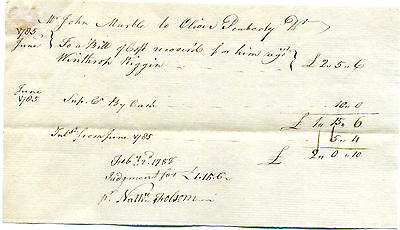 Mr John Marble to Oliver Peabody Dr
1785 June } To a Bill of Cost recover'd for him agst Winthrop Wiggin } £ 2 „ 5 „ 6
June 1785 Sup. Ct By Cash 10 „ 0
£ 1 „ 15 „ 6
Intst from June 1785 5 „ 4
£ 2 „ 0 „ 10
Feby 1788
Judgment for £1.15.6
pr Nathl Folsom